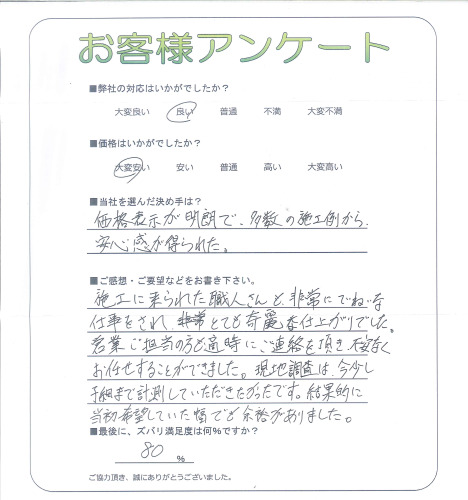 お客様アンケート
■弊社の対応はいかがでしたか？
大変良い 良い 普通 不満 大変不満
■価格はいかがでしたか？
大変安い 安い 普通 高い 大変高い
■当社を選んだ決め手は？
価格表示が明朗で、多数の施工例から、
安心感が得られた。
■ご感想・ご要望などをお書き下さい。
施工に来られた職人さんも非常にていねいな
仕事をされ、とても奇麗な仕上がりでした。
営業ご担当の方も適時にご連絡を頂き、不安なく
お任せすることができました。現地調査は、今少し
仔細まで計測していただきたかったです。結果的に
当初希望していた幅でも余裕がありました。
■最後に、ズバリ満足度は何%ですか？
80 %
ご協力頂き、誠にありがとうございました。